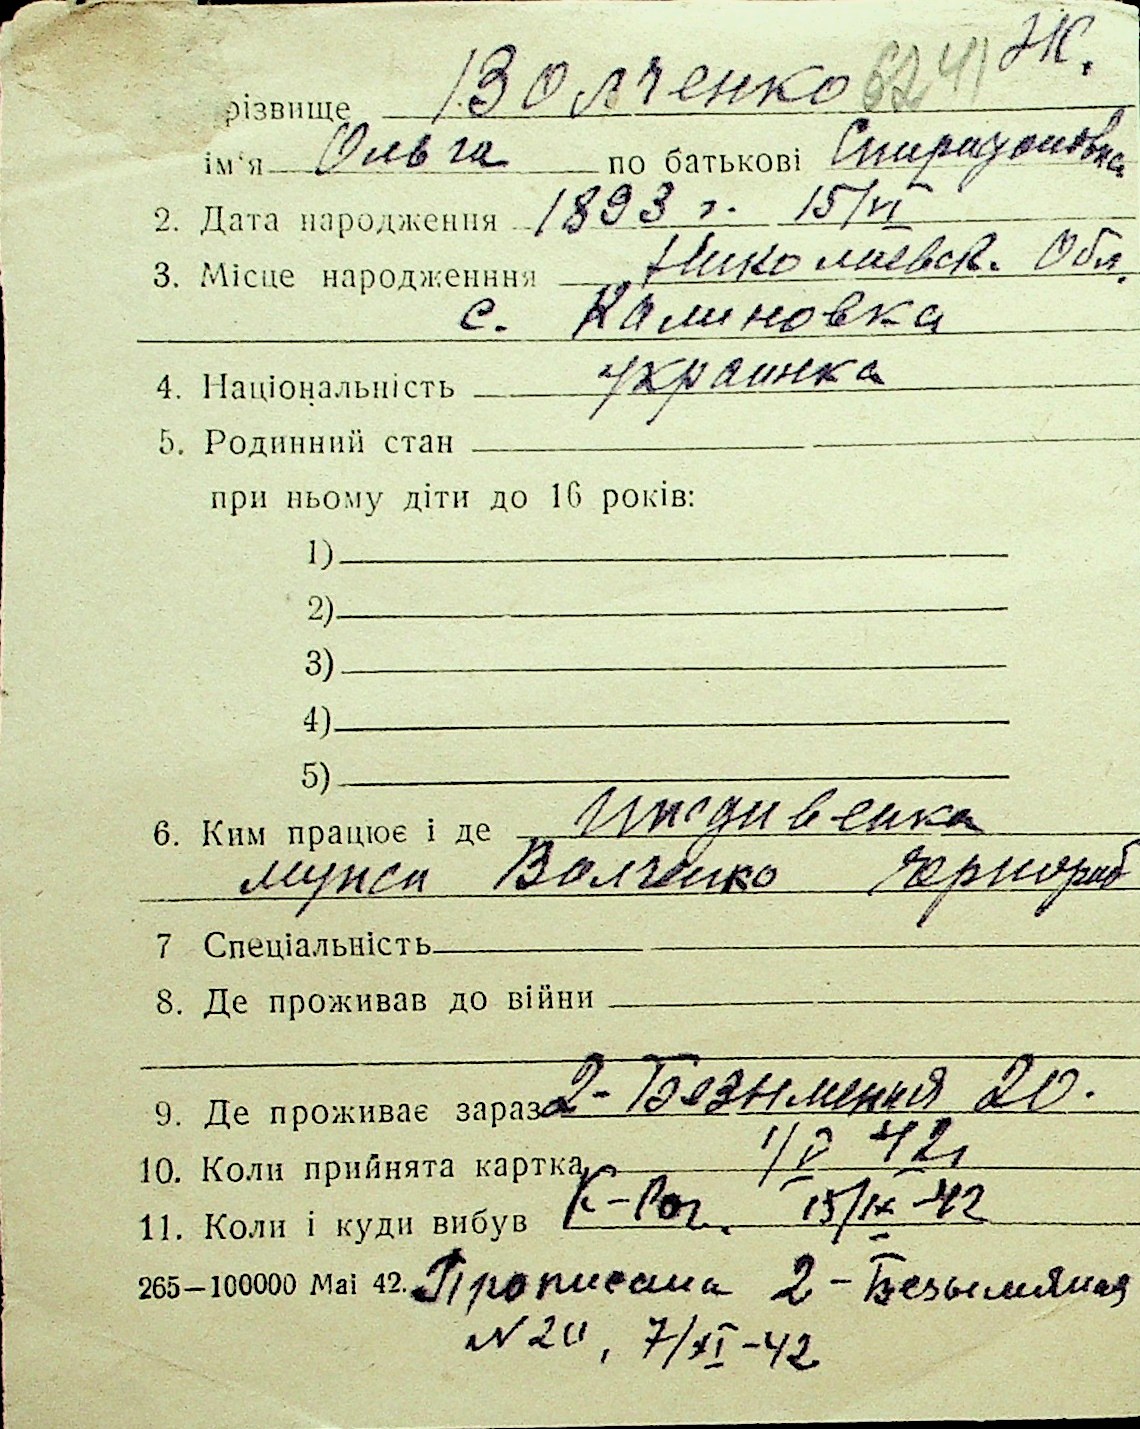 Ж.
різвище Волченко 6241
ім'я Ольга по батькові Спиридоновна
2. Дата народження 1893 г. 15/VI
3. Місце народженння Николаевск. Обл.
с. Калиновка
4. Національність украинка
5. Родинний стан
при ньому діти до 16 років:
1)
2)
3)
4)
5)
6. Ким працює і де Иждивенка
мужа Волченко Чернораб
7 Спеціальність
8. Де проживав до війни
9. Де проживає зараз 2-Безыменная 20.
10. Коли прийнята картка 1/V 42
11. Коли і куди вибув К-Рог. 15/IX-42
265—100000 Mai 42. Прописана 2-Безымяная
N 20, 7/XI-42